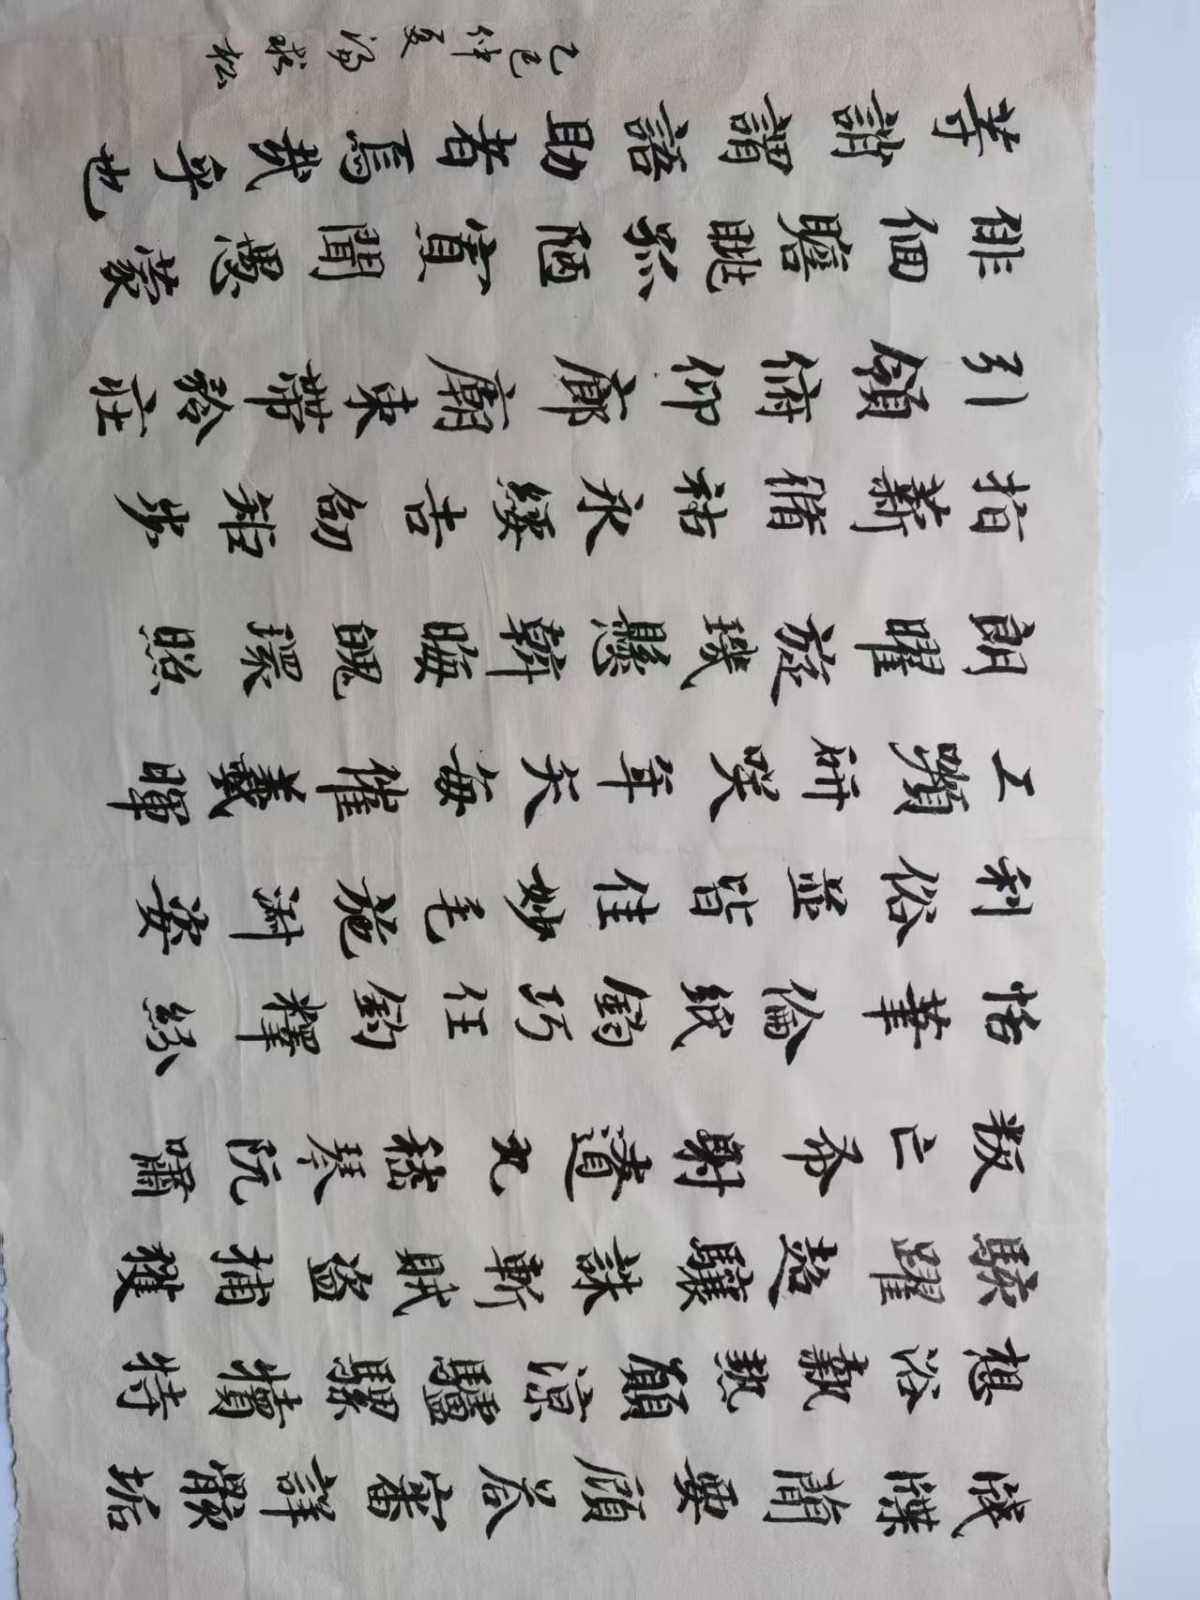 牋牒簡要顧荅審詳骸垢
想浴執熱願涼驢騾犢特
駭躍超驤誅斬賊盜捕獲
叛亡布射遼丸嵇琴阮嘯
恬筆倫紙鈞巧任釣釋紛
利俗並皆佳妙毛施淑姿
工嚬妍咲年矢每催羲暉
朗曜旋璣懸斡晦魄環照
指薪脩祜永綏吉劭矩步
引領俯仰廊廟束帶矜莊
俳佪瞻眺孤陋寡聞愚蒙
等誚謂語助者焉哉乎也
乙巳仲夏 松